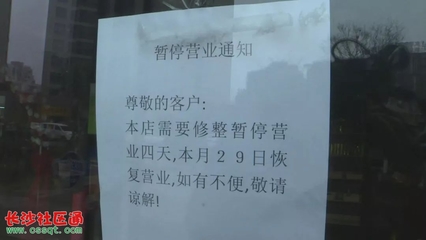 暂停营业通知
尊敬的客户:
本店需要修整暂停营
业四天,本月29日恢
复营业,如有不便,敬请
谅解!
长沙社区通
www.cssqt.com